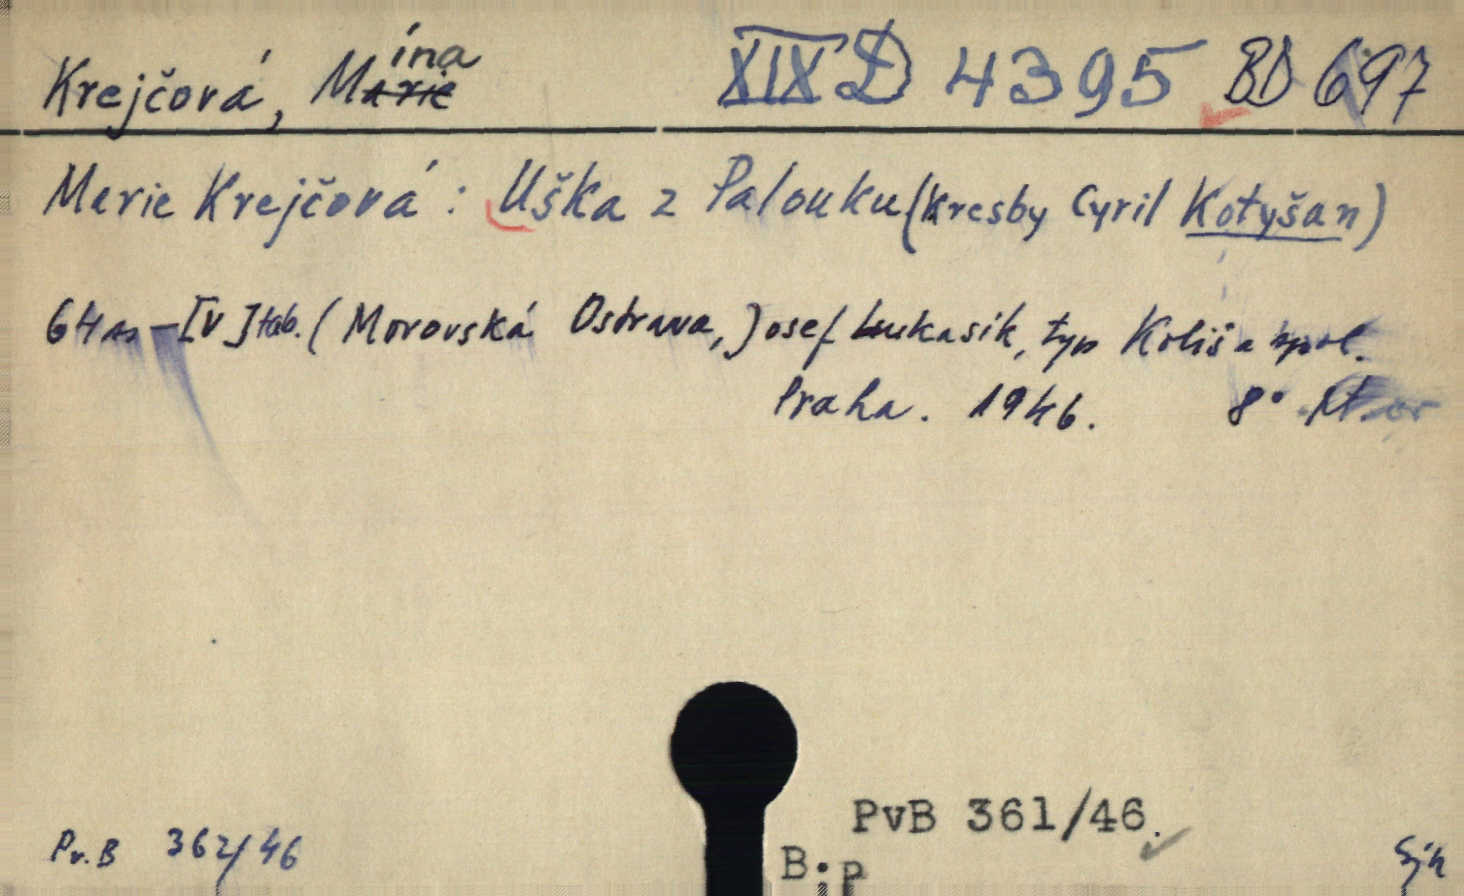 Krejčová, Marie ína XIX D 4395 BD 697
Merie Krejčová: Uška z Palouku (kresby Cyril Kotyšan)
64 s - [V] tab. (Morovská Ostrava, Josef Lukasik, typ Koliš a spol.
Praha. 1946. 8°
PvB 361/46.
Pv.B 362/46
B:p